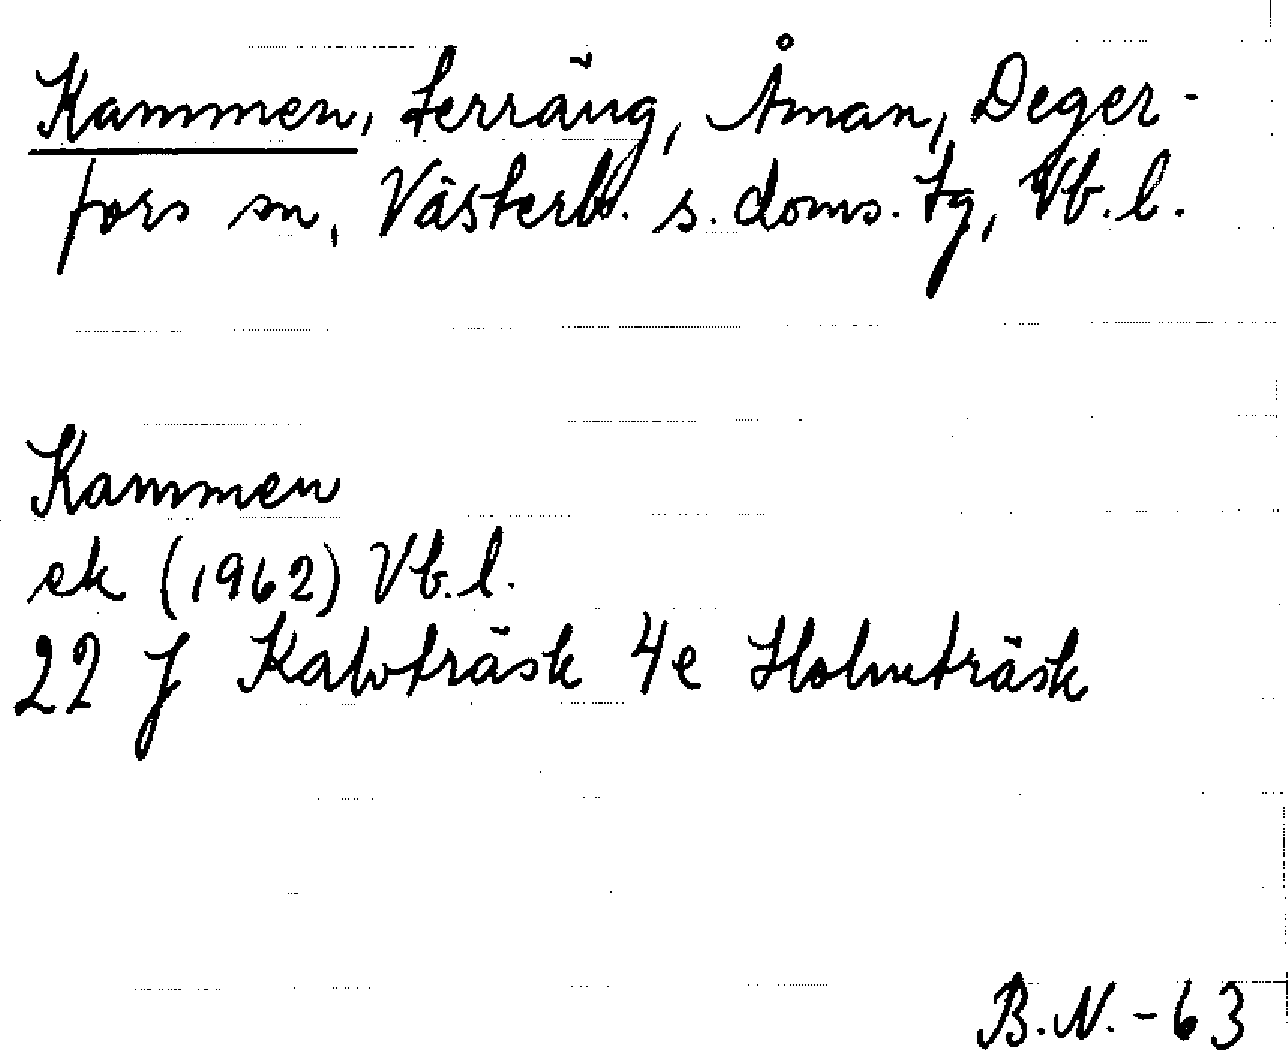 Kammen, terräng, Åman, Deger-
fors sn, Västerb. s. doms. tg, Vb. l.
Kammen
ek (1962) Vb. l.
22 J Kalvträsk 4e Holmträsk
B.N. - 63